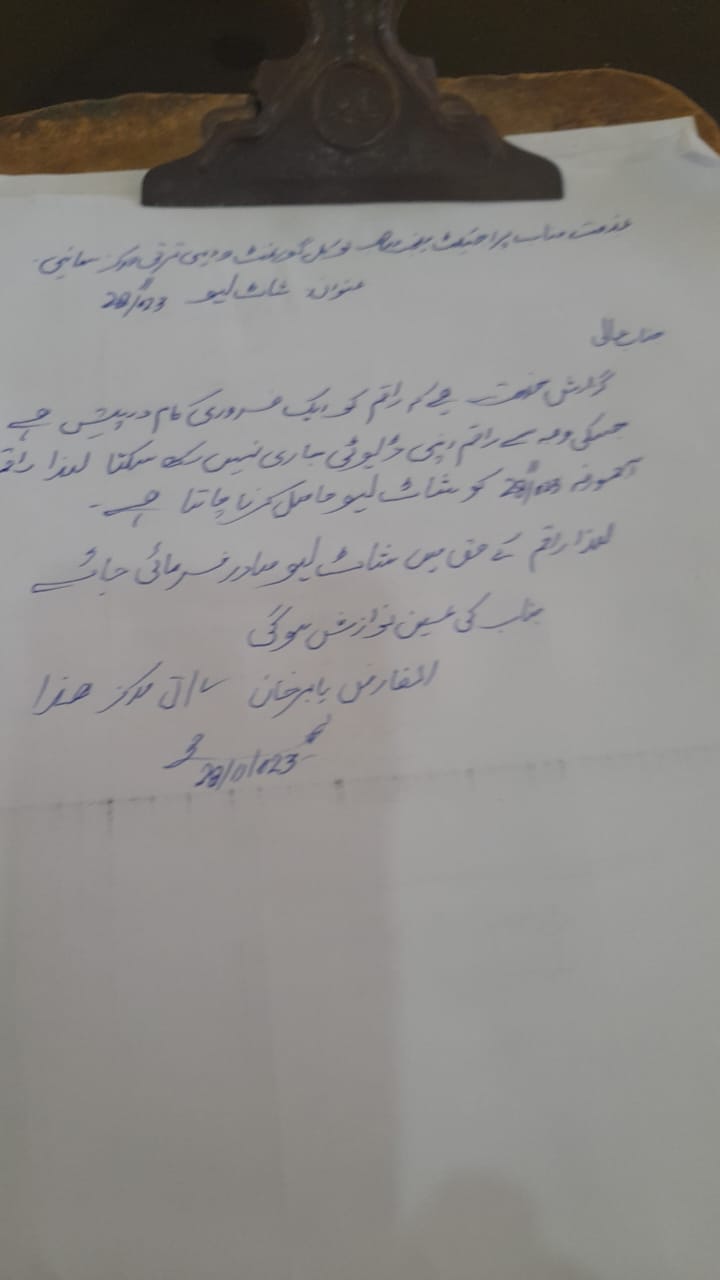 بخدمت جناب پراجیکٹ منیجر لوکل گورنمنٹ و دیہی ترقی مرکز
عنوان: شارٹ لیو
جناب عالی
گزارش خدمت ہے کہ راقم کو ایک ضروری کام درپیش ہے
جسکی وجہ سے راقم اپنی ڈیوٹی جاری نہیں رکھ سکتا لھذا راقم
آمورخہ کو شارٹ لیو حاصل کرنا چاہتا ہے۔
لھذا راقم کے حق میں شارٹ لیو صادر فرمائی جائے
جناب کی عین نوازش ہوگی
العارض بابر خان مرکز ھذا